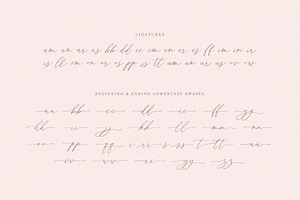 LIGATURES
am an ar as bb dd ee em en er es ff im in ir
is ll om on or os pp ss tt um un ur us ov ow
BEGINNING & ENDING LOWERCASE SWASHES
aa bb cc dd ee ff gg
hh ii jj kk ll mm nn
oo pp qq rr ss t tt uu
vv ww xx yy zz